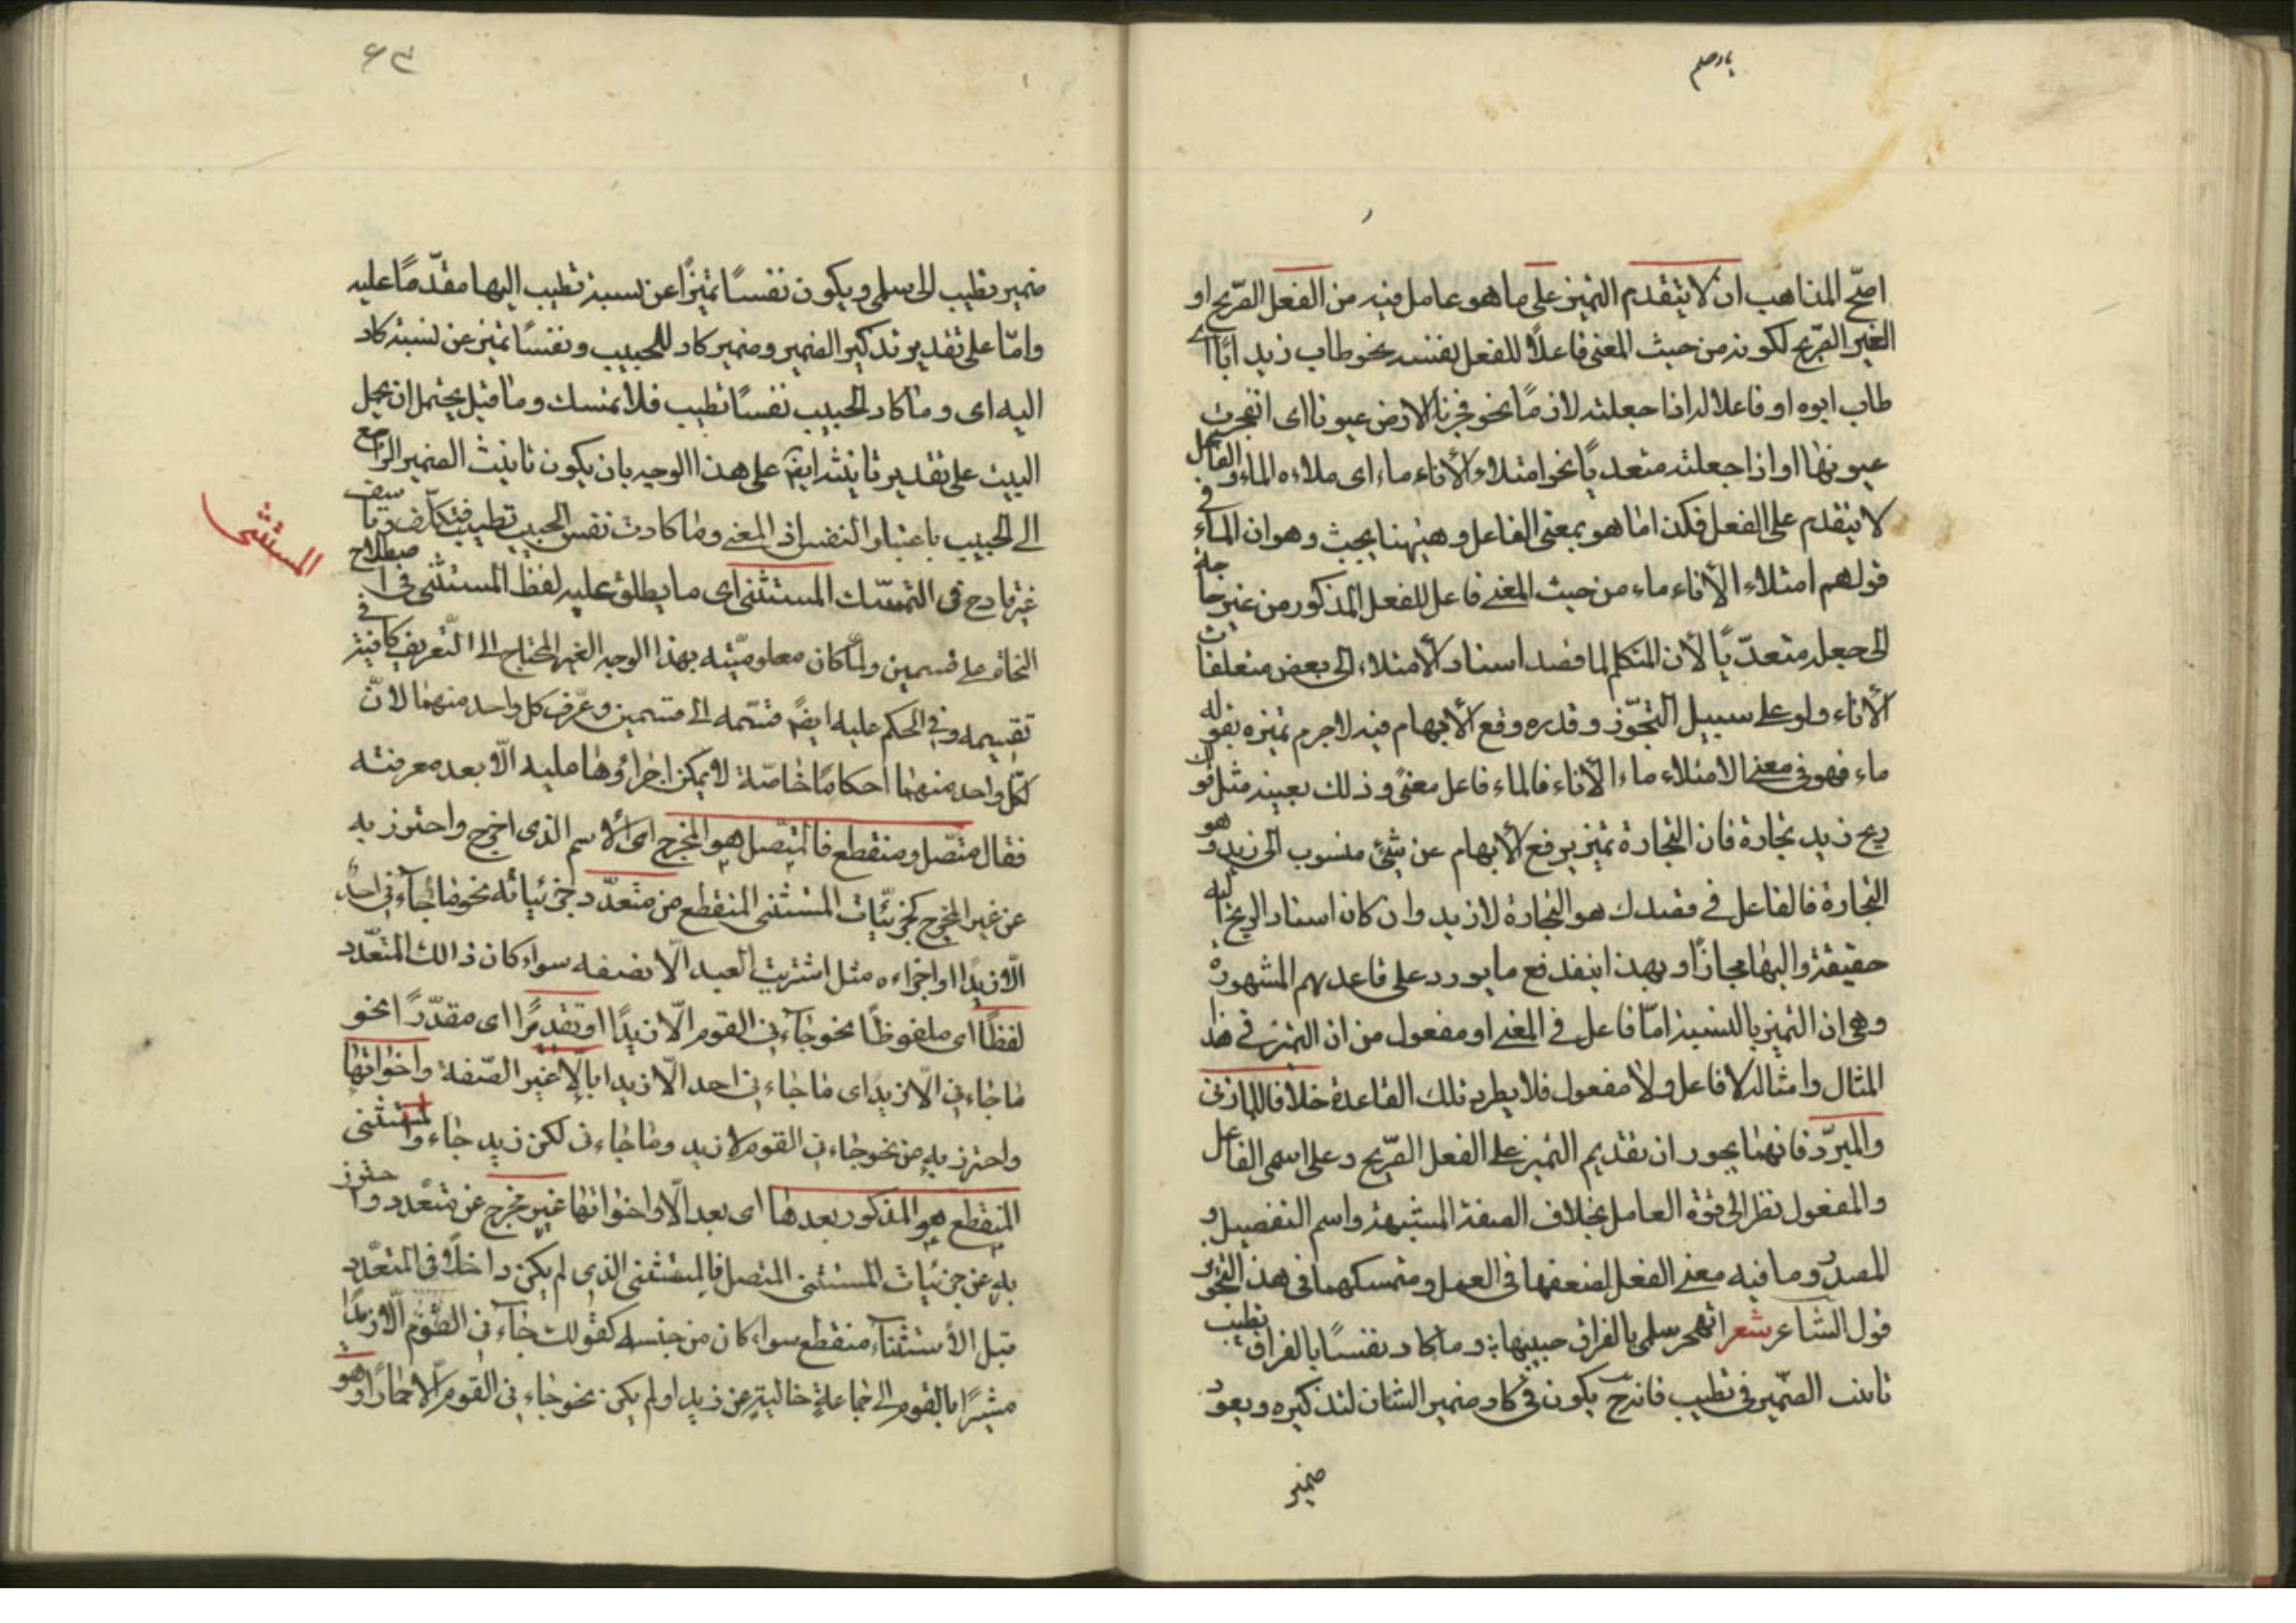 اصحّ المذاهب ان لا يتقدم التميز على ما هو عامل فيه من الفعل الصّريح او
الغير الصّريح لكونه من حيث المعنى فاعلاً للفعل نفسه نحو طاب زيد اباً اى
طاب ابوه او فاعلا له اذا جعلته لازمًا نحو فجرنا الارض عيونا اى انفجرت
عيونها او اذا جعلته متعدياً نحو امتلاء الأناء ماء اى ملاءه الماء والفاعل
لا يتقدم على الفعل فكذا ما هو بمعنى الفاعل وهيهنا بحث وهو ان الماء فى
قولهم امتلاء الأناء ماء من حيث المعنى فاعل للفعل المذكور من غير حاجة
الى جعله متعدّياً لأن المتكلم لما قصد اسناد الأمتلاء الى بعض متعلقات
الأناء ولو على سبيل التجوّز وقدره وقع الأبهام فيه لاجرم تميزه بقوله
ماء فهو فى معنى الامتلاء ماء الأناء فالماء فاعل معنىً وذلك بعينه مثل قولك
ربح زيد تجارة فان التجارة تميز يرفع الأبهام عن شئ منسوب الى زيد وهو
التجارة فالفاعل فى قصدك هو التجارة لا زيد وان كان اسناد الربح اليه
حقيقة واليها مجازًا وبهذا يندفع ما يورد على قاعدتهم المشهورة
وهى ان التميز بالنسبة امّا فاعل فى المعنى او مفعول من ان التميز فى هذا
المثال وامثاله لا فاعل ولا مفعول فلا يطرد تلك القاعدة خلافا للمازنى
والمبرّد فانهما يجوزان تقديم التميز على الفعل الصّريح وعلى اسمى الفاعل
والمفعول نظرا الى قوة العامل بخلاف الصفة المشبهة واسم التفضيل و
المصدر وما فيه معنى الفعل لضعفها فى العمل ومتمسكهما فى هذا التجويز
قول الشاعر شعر اتهجر سلمى بالفراق حبيبها وما كاد نفسًا بالفراق تطيب
تانيث الضّمير فى تطيب فانه ح يكون فى كاد ضمير الشان لتذكيره ويعود
ضمير
ضمير تطيب الى سلمى ويكون نفسًا تميزًا عن نسبة تطيب اليها مقدّمًا عليه
وامّا على تقدير تذكير الضمير وضمير كاد للحبيب ونفسًا تميز عن نسبة كاد
اليه اى وما كاد الحبيب نفسًا تطيب فلا تمسك وما قيل يحتمل ان يحمل
البيت على تقدير تانيثه ايضً على هذا الوجه بان يكون تانيث الضمير الراجع
الى الحبيب باعتبار النفس اذ المعنى وما كادت نفس الحبيب تطيب فتكلّف وتعسف
المستثنى
غير قادح فى التمسّك المستثنى اى ما يطلق عليه لفظ المستثنى فى اصطلاح
النحاة على قسمين ولمّا كان معلوميّته بهذا الوجه الغير المحتاج الى التّعريف كافية فى
تقسيمه وفى الحكم عليه ايضً قسّمه الى قسمين وعرّف كل واحد منهما لانّ
لكل واحد منهما احكامًا خاصّة لا يمكن اجراؤها عليه الّا بعد معرفته
فقال متّصل ومنقطع فالمتصل هو المخرج اى الأسم الذى اخرج واحترز به
عن غير المخرج كجزئيّات المستثنى المنقطع من متعدّد جزئياته نحو ما جاءنى احدٌ
الّا زيدًا او اجزاءه مثل اشتريت العبد الّا نصفه سواء كان ذالك المتعدّد
لفظًا اى ملفوظًا نحو جاءنى القوم الّا زيدًا او تقديرًا اى مقدّرًا نحو
ما جاءنى الّا زيدًا اى ما جاءنى احد الّا زيدا بالّا غير الصّفة واخواتها
واحترز به من نحو جاءنى القوم لا زيد وما جاءنى لكن زيد جاء والمستثنى
المنقطع هو المذكور بعدها اى بعد الّا واخواتها غير مخرج عن متعدد واحترز
به عن جزئيات المستثنى المتصل فالمستثنى الذى لم يكن داخلًا فى المتعدّد
قبل الأستثناء منقطع سواء كان من جنسه كقولك جاءنى القوم الّا زيدًا
مشيرًا بالقوم الى جماعةٍ خاليةٍ عن زيد او لم يكن نحو جاءنى القوم الّا حمارًا وهو